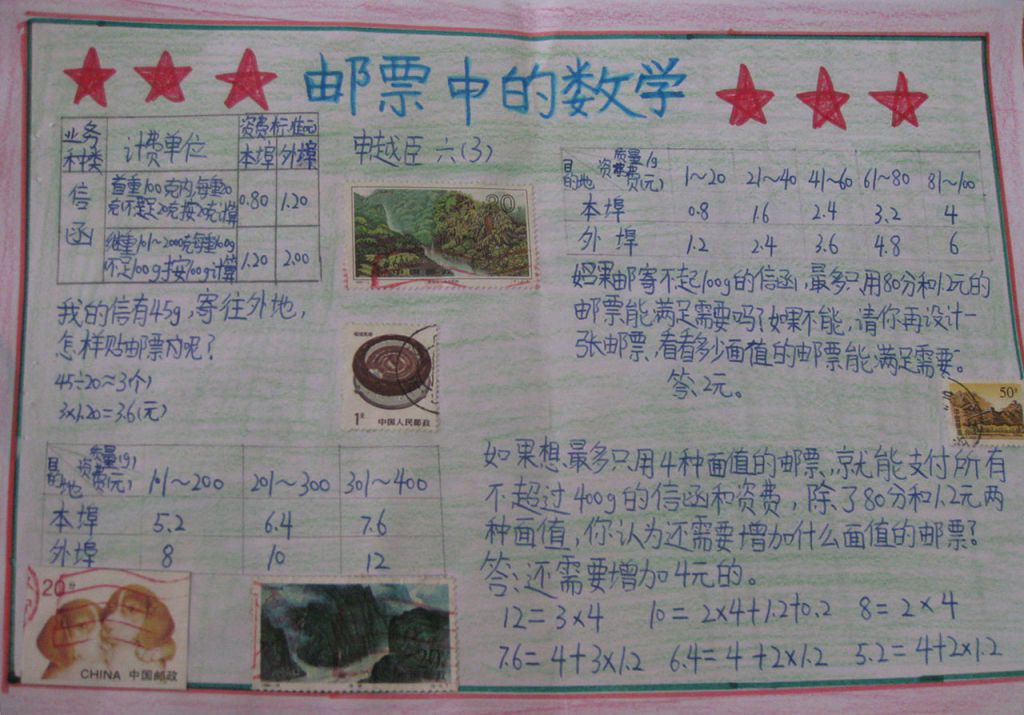 邮票中的数学
申越臣 六(3)
业务种类 计费单位 资费标准(元)
本埠 外埠
信函 首重100克内,每重20克(不足20克按20克计算) 0.80 1.20
续重101~2000克每重100g(不足100g按100g计算) 1.20 2.00
我的信有45g,寄往外地,
怎样贴邮票内呢?
45÷20≈3(个)
3×1.20=3.6(元)
目的地 资费(元) 质量(g) 101~200 201~300 301~400
本埠 5.2 6.4 7.6
外埠 8 10 12
20分
CHINA 中国邮政
20
1元 中国人民邮政
20
目的地 资费(元) 质量/g 1~20 21~40 41~60 61~80 81~100
本埠 0.8 1.6 2.4 3.2 4
外埠 1.2 2.4 3.6 4.8 6
如果邮寄不起100g的信函,最多只用80分和1.2元的
邮票能满足需要吗?如果不能,请你再设计一
张邮票,看看多少面值的邮票能满足需要。
答:2元。
50分
如果想最多只用4种面值的邮票,就能支付所有
不超过400g的信函和资费,除了80分和1.2元两
种面值,你认为还需要增加什么面值的邮票?
答:还需要增加4元的。
12=3×4 10=2×4+1.2+0.2 8=2×4
7.6=4+3×1.2 6.4=4+2×1.2 5.2=4+2×1.2